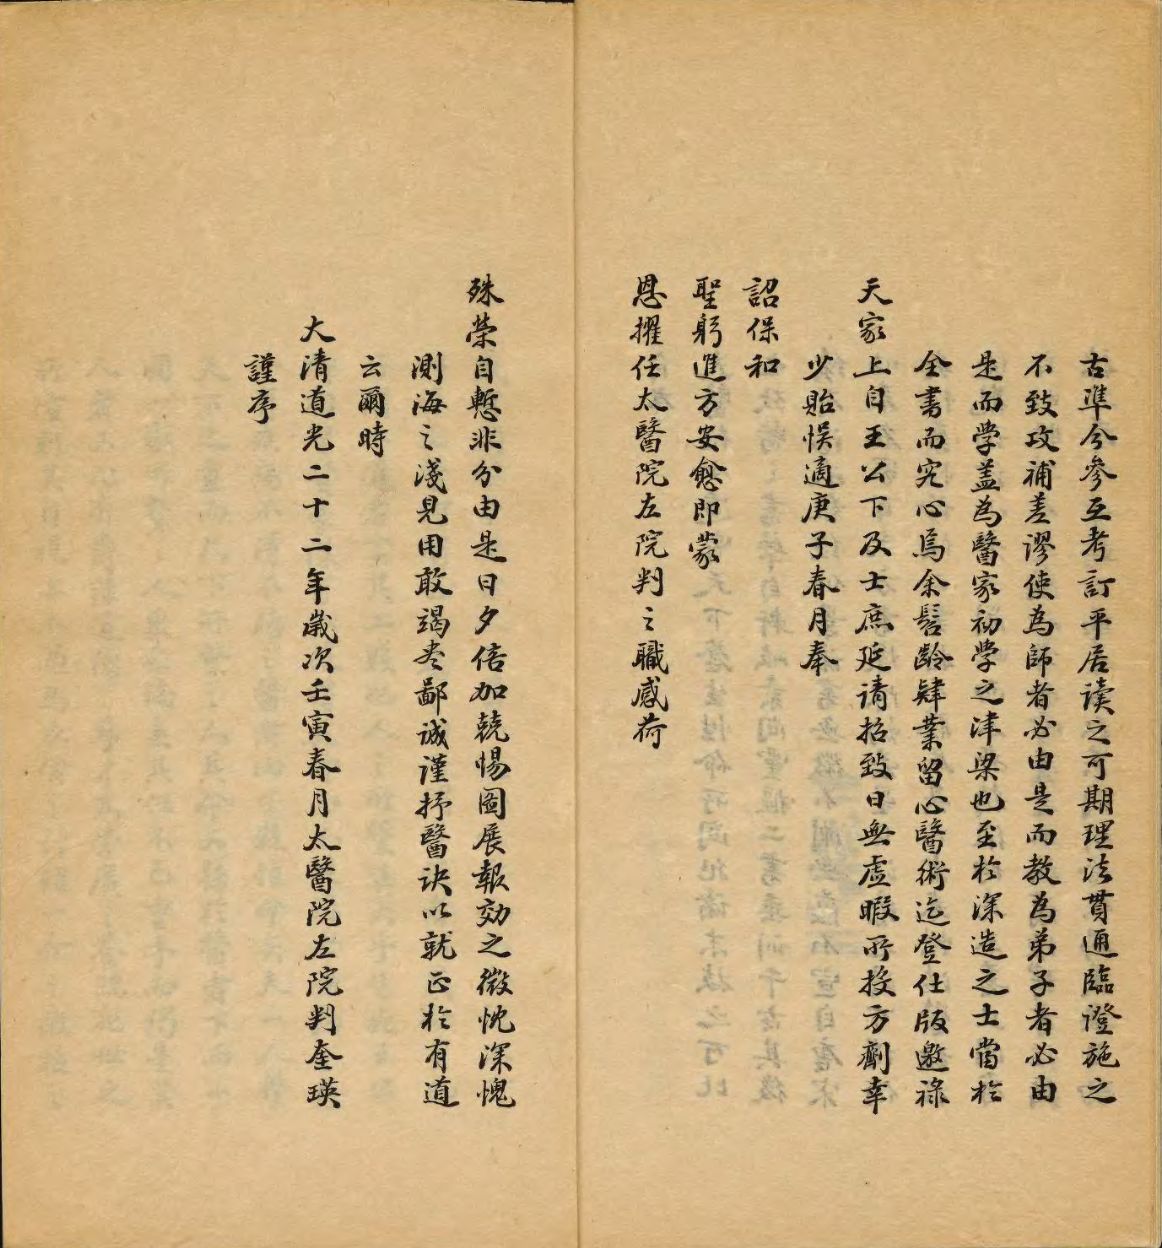 古準今參互考訂平居讀之可期理法貫通臨證施之
不致攻補差謬使為師者必由是而教為弟子者必由
是而学盖為醫家初学之津梁也至於深造之士當於
全書而究心焉余髫齡肄業留心醫術迄登仕版邀祿
天家上自王公下及士庶延请招致日無虛暇所投方劑幸
少貽悮適庚子春月奉
詔保和
聖躬進方安愈即蒙
恩擢任太醫院左院判之職感荷
殊榮自慙非分由是日夕倍加兢惕圖展報効之微忱深愧
測海之淺見用敢竭盡鄙诚谨抒醫訣以就正於有道
云爾時
大清道光二十二年歲次壬寅春月太醫院左院判奎瑛
謹序